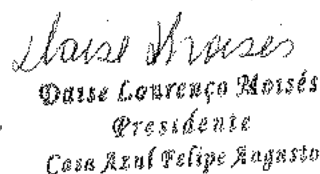 Daise Moisés
Daise Lourenço Moisés
Presidente
Casa Azul Felipe Augusto